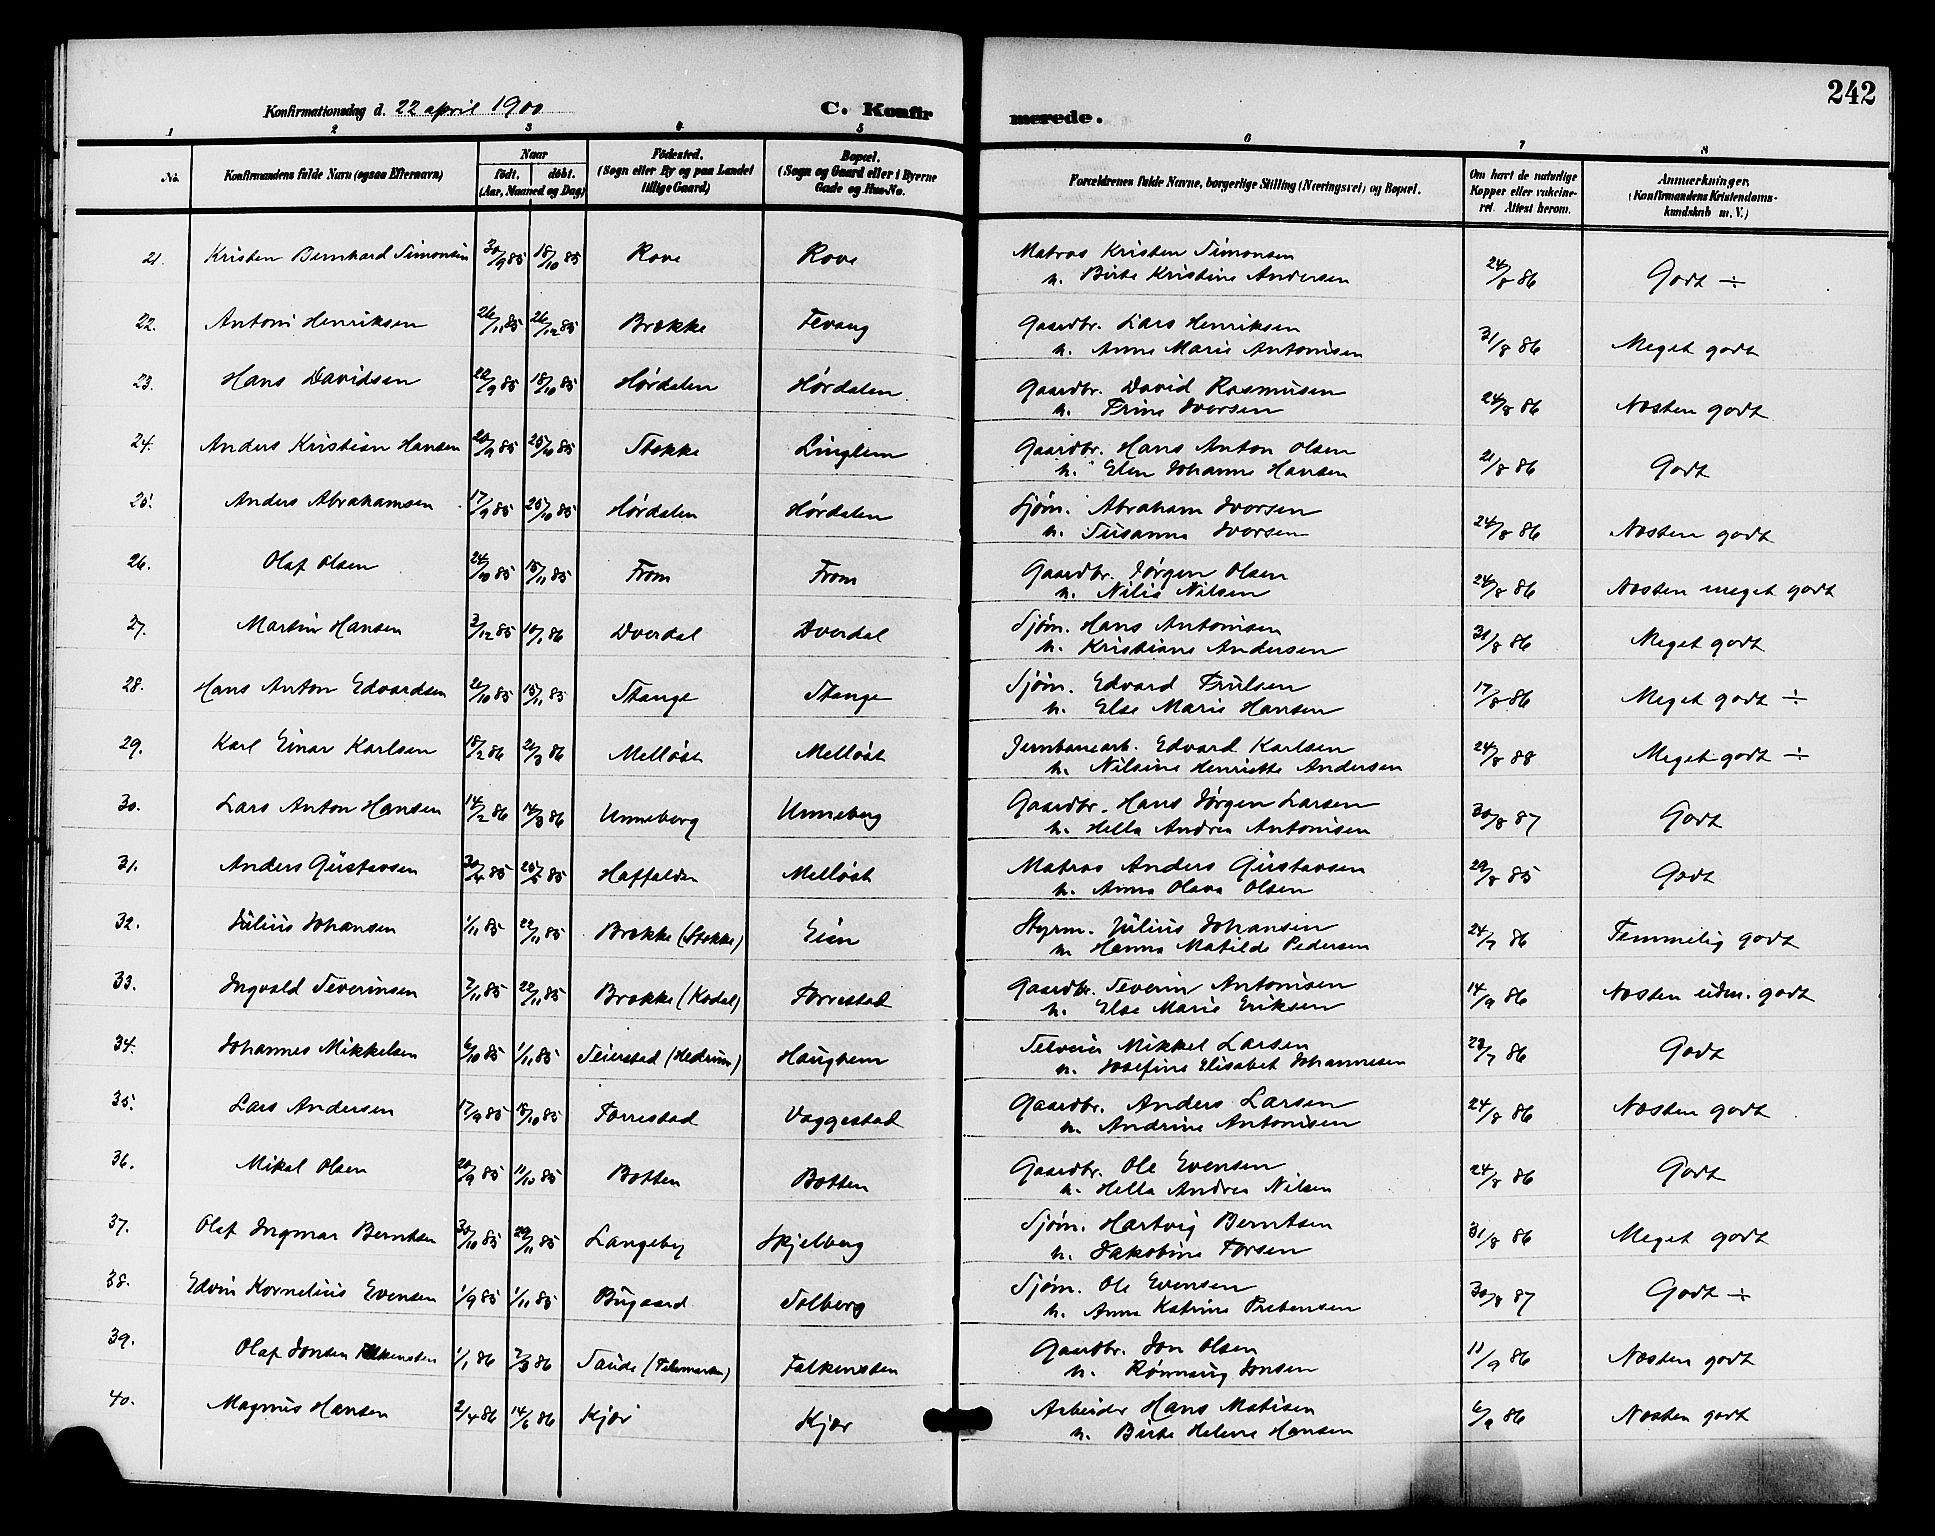 242
Konfirmationsdag d. 22 april 1900 C. Konfirmerede.
1 2 3 4 5 6 7 8
No. Konfirmandens fulde Navn (ogsaa Efternavn) Naar født. døbt. (Aar, Maaned og Dag) Fødested. (Sogn eller By og paa Landet tillige Gaard) Bopæl. (Sogn og Gaard eller i Byerne Gade og Hus-No. Forældrenes fulde Navne, borgerlige Stilling (Næringsvei) og Bopæl. Om havt de naturlige Kopper eller vakcineret. Attest herom. Anmærkninger, (Konfirmandens Kristendomskundskab m. V.)
21. Kristen Bernhard Simonsen 30/9 85 18/10 85 Rove Rove Matros Kristen Simonsen 24/8 86 Godt ÷
n. Birte Kristine Andersen
22. Anton Henriksen 26/11 85 26/12 85 Brække Fevang Gaardbr. Lars Henriksen 31/8 86 Meget godt
n. Anne Marie Antonisen
23. Hans Davidsen /9 85 18/10 85 Hørdalen Hørdalen Gaardbr. David Rasmusen 24/8 86 Næsten godt
n. Trine Iversen
24. Anders Kristian Hansen /9 85 25/10 85 Stokke Linglem Gaardbr. Hans Anton Olsen 21/8 86 Godt
n. Elen Johanne Hansen
25. Anders Abrahamsen 17/9 85 25/10 85 Hørdalen Hørdalen Sjøm. Abraham Iversen 24/8 86 Næsten godt
n. Susanna Iversen
26. Olaf Olsen 24/10 85 15/11 85 Frøm Frøm Gaardbr. Jørgen Olsen 24/8 86 Næsten meget godt
n. Nilia Nilsen
27. Martin Hansen 3/12 85 /1 86 Dverdal Dverdal Sjøm. Hans Antonisen 31/8 86 Meget godt
n. Kristiane Andersen
28. Hans Anton Edvardsen /10 85 15/11 85 Stange Stange Sjøm. Edvard Trulsen 17/8 86 Meget godt ÷
n. Else Marie Hansen
29. Karl Einar Karlsen 18/2 86 21/3 86 Melløst Melløst Jernbanearb. Edvard Karlsen 24/8 88 Meget godt ÷
n. Nilsine Henriette Andersen
30. Lars Anton Hansen 14/2 86 14/3 86 Unneberg Unneberg Gaardbr. Hans Jørgen Larsen 30/8 87 Godt
n. Hella Andrea Antonisen
31. Anders Gustavsen 30/4 85 25/5 85 Haffalden Melløst Matros Anders Gustavsen 29/8 85 Godt
n. Anna Olava Olsen
32. Julius Johansen 1/11 85 22/11 85 Brække (Stokke) Styrm. Julius Johansen 24/7 86 Temmelig godt
n. Hanna Matilde Pedersen
33. Ingvald Severinsen 7/11 85 22/11 85 Brække (Kodal) Torrestad Gaardbr. Severin Antonisen 14/9 86 Næsten udm. godt
n. Else Marie Eriksen
34. Johannes Mikkelsen 6/10 85 1/11 85 Seierstad (Hedrum) Haughem Selveier Mikkel Larsen 28/7 86 Godt
n. Josefine Elisabet Johannesen
35. Lars Andersen 17/9 85 18/10 85 Torrestad Vaggestad Gaardbr. Anders Larsen 24/8 86 Næsten godt
n. Andrine Antonisen
36. Mikal Olsen 20/9 85 11/10 85 Botten Botten Gaardbr. Ole Evensen 24/8 86 Godt
n. Hella Andrea Nilsen
37. Olaf Ingmar Berntsen 30/10 85 29/11 85 Langeby Skjelberg Sjøm. Hartvig Berntsen 31/8 86 Meget godt
n. Jakobine Torsen
38. Edvin Kornelius Evensen 1/9 85 1/11 85 Bugaard Solberg Sjøm. Ole Evensen 30/8 87 Godt ÷
n. Anne Katrine Prebensen
39. Olaf Jonsen Falkensten 1/1 86 7/3 86 Saude (Telemarken) Falkensten Gaardbr. Jon Olsen 11/9 86 Næsten godt
n. Rønnaug Jonsen
40. Magnus Hansen 2/4 86 14/6 86 Kjær Kjær Arbeider Hans Matisen 6/9 86 Næsten godt
n. Birte Helene Hansen